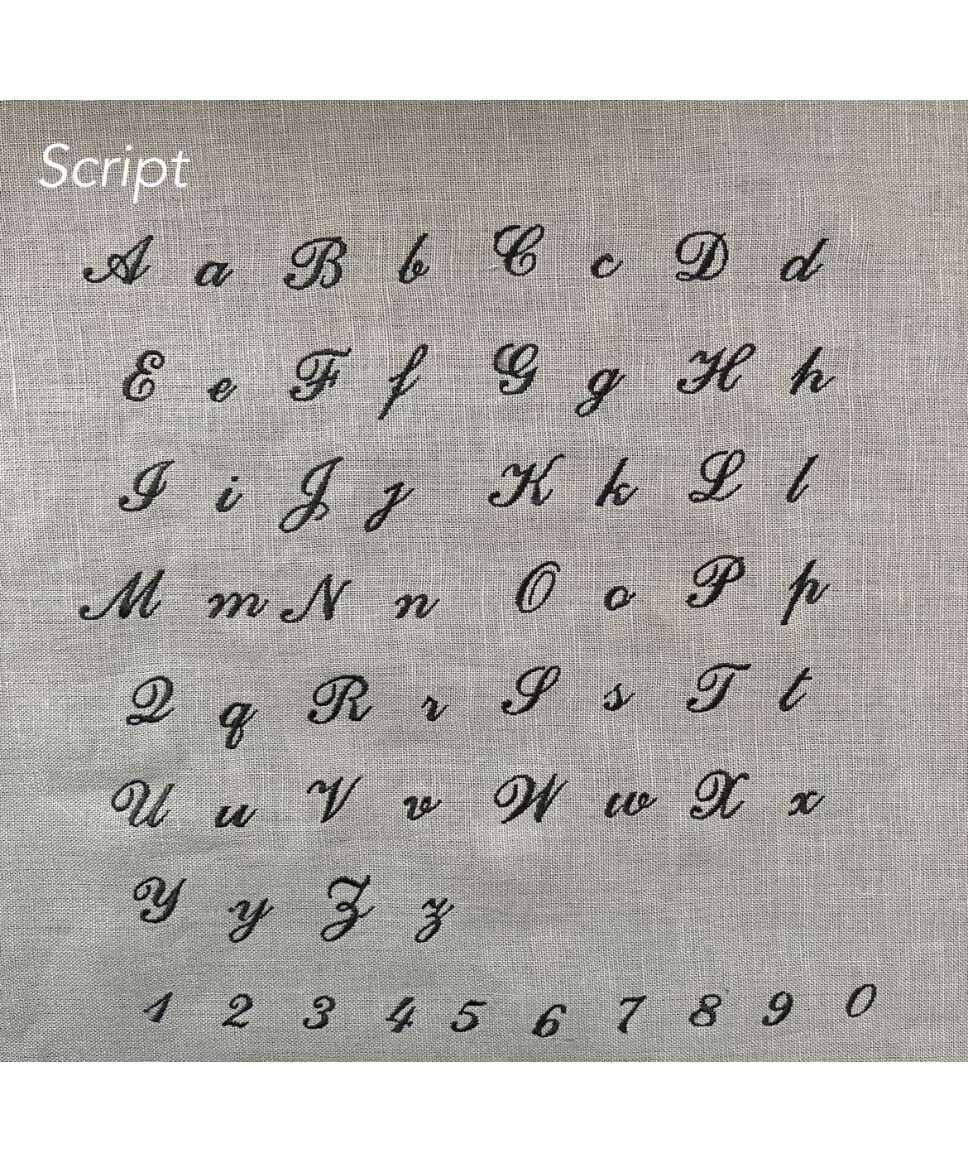 Script
A a B b C c D d
E e F f G g H h
I i J j K k L l
M m N n O o P p
Q q R r S s T t
U u V v W w X x
Y y Z z
1 2 3 4 5 6 7 8 9 0